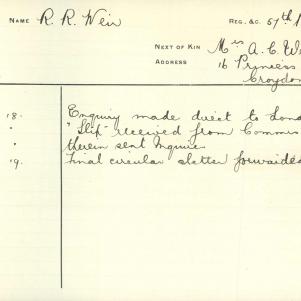 NAME R. R. Weir
REG. &C. 57th
NEXT OF KIN Mrs A. C. W
ADDRESS 16 Princess
Croydon
18. Enquiry made direct to Lond
" "Slip" received from Commis
" therein sent Inquirer
19. Final circular & letter forwarded